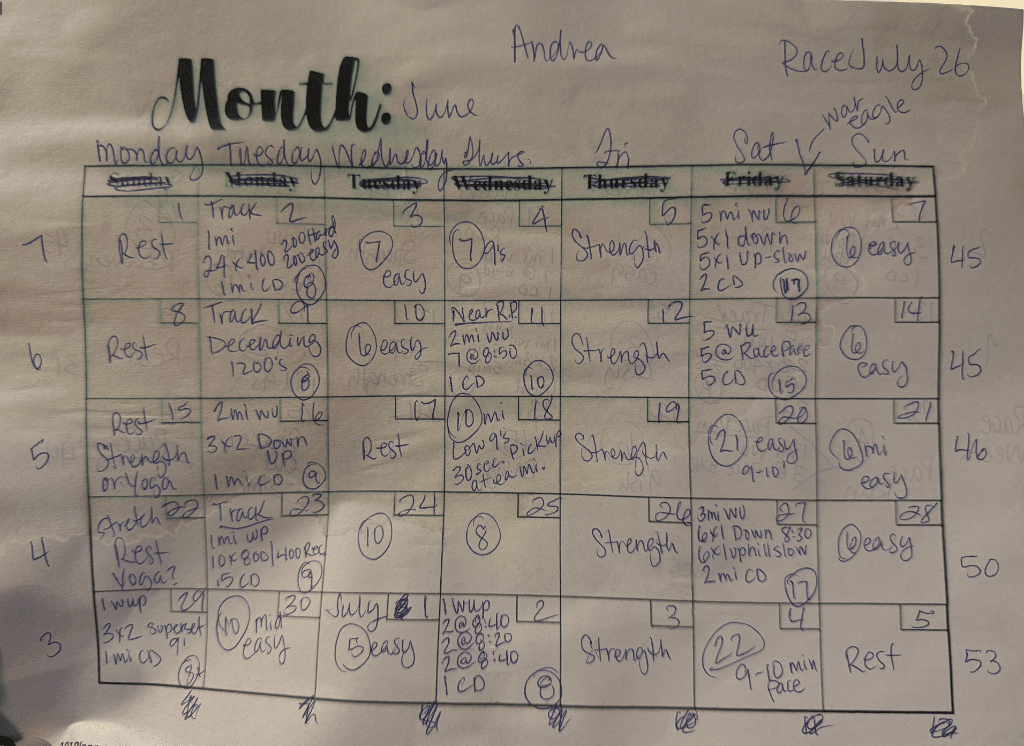 Andrea
Race July 26
Month: June
war
eagle
Monday Tuesday Wednesday Thurs. Fri Sat Sun
Sunday Monday Tuesday Wednesday Thursday Friday Saturday
7
1
Rest
Track 2
1mi
24 x 400 200 Hard
200 easy
1mi CD 8
3
7
easy
4
7 9's
5
Strength
5 mi wu 6
5x1 down
5x1 Up-slow
2 CD 17
7
6 easy
45
6
8
Rest
Track 9
Decending
1200's
8
10
6 easy
Near R.P. 11
2mi wu
7 @ 8:50
1 CD 10
12
Strength
13
5 wu
5 @ Race Pace
5 CD 15
14
6
easy
45
5
Rest 15
Strength
or Yoga
2mi wu 16
3x2 Down
UP
1 mi CD 9
17
Rest
10 mi 18
Low 9's
30 sec. Pickup
at ea mi.
19
Strength
20
21 easy
9-10
21
6 mi
easy
46
4
Stretch 22
Rest
Yoga?
Track 23
1mi wp
10x800/400 Rec
.5 CD 9
24
10
25
8
26
Strength
3mi wu 27
6x1 Down 8:30
6x1 uphill slow
2mi CD 17
28
6 easy
50
3
1 wup 29
3x2 superset
9!
1mi CD
8+
30
10 mid
easy
July 1
5 easy
1 wup 2
2 @ 8:40
2 @ 8:20
2 @ 8:40
1 CD 8
3
Strength
4
22
9-10 min
pace
5
Rest
53